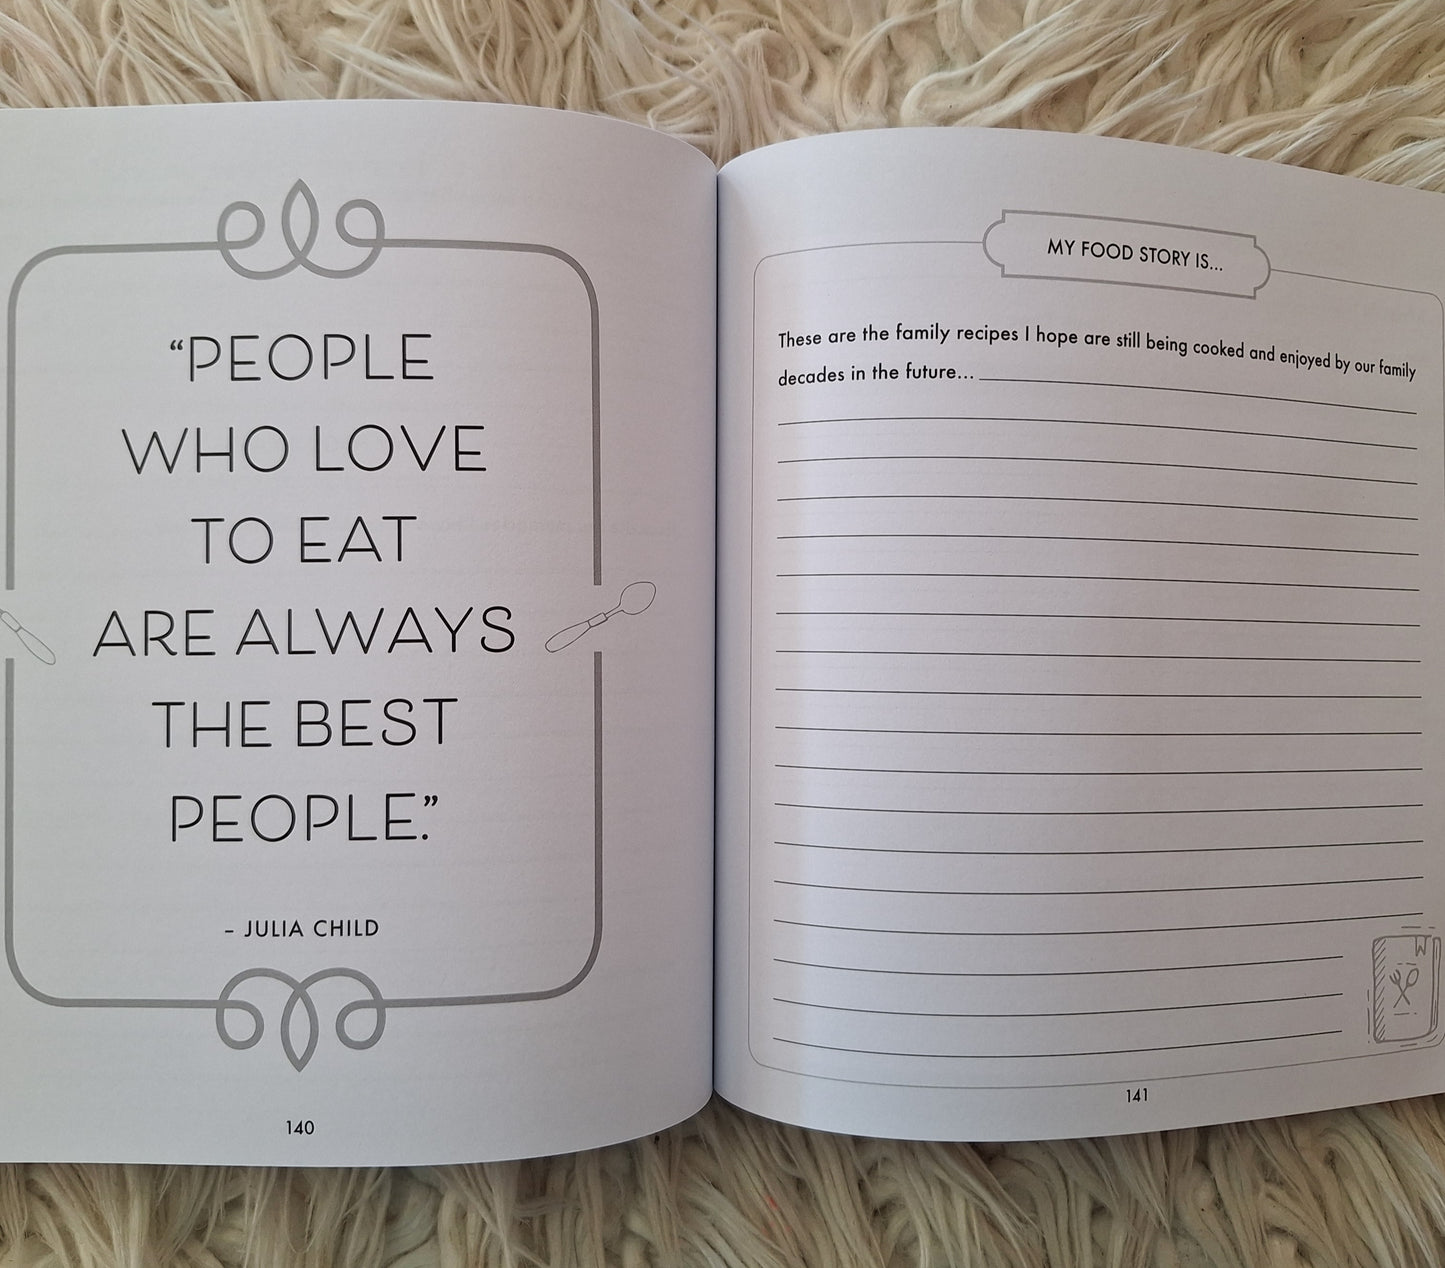 “PEOPLE
WHO LOVE
TO EAT
ARE ALWAYS
THE BEST
PEOPLE.”
– JULIA CHILD
140
MY FOOD STORY IS...
These are the family recipes I hope are still being cooked and enjoyed by our family
decades in the future...
141